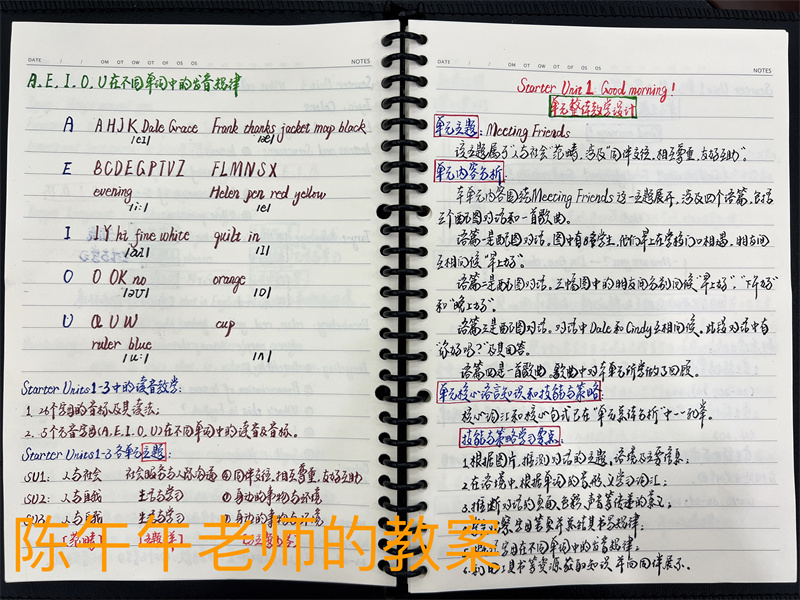 DATE / / OM OT OW OT OF OS OS NOTES
A.E.I.O.U在不同单词中的发音规律
A AHJK Dale Grace Frank thanks jacket map black
/eɪ/ /æ/
E BCDEGPTVZ FLMNSX
evening Helen pen red yellow
/i:/ /e/
I I Y hi fine white quilt in
/aɪ/ /ɪ/
O O OK no orange
/əʊ/ /ɒ/
U Q U W cup
ruler blue
/u:/ /ʌ/
Starter Units1-3中的读音教学:
1. 26个字母的音标及其读法;
2. 5个元音字母(A.E.I.O.U)在不同单词中的读音及音标。
Starter Units1-3各单元主题:
SU1: 人与社会 社会服务与人际沟通 ①同伴交往,相互尊重,友好互助
SU2: 人与自我 生活与学习 ①身边的事物与环境
SU3: 人与自我 生活与学习 ①身边的事物与环境
DATE / / OM OT OW OT OF OS OS NOTES
Starter Unit 1 Good morning!
单元整体教学设计
单元主题: Meeting Friends
该主题属于"人与社会"范畴,涉及"同伴交往,相互尊重,友好互助"。
单元内容分析:
本单元内容围绕Meeting Friends这一主题展开,涉及四个语篇,包括
三个配图对话和一首歌曲。
语篇一是配图对话。图中有8名学生,他们早上在学校门口相遇,朋友间
互相问候"早上好"。
语篇二是配图对话。三幅图中的朋友间分别问候"早上好","下午好"
和"晚上好"。
语篇三是配图对话。对话中Dale和Cindy互相问候,此段对话中有
"你好吗?"及其回答。
语篇四是一首歌曲。歌曲中对本单元所学做了回顾。
单元核心语言知识和技能与策略:
核心词汇和核心句式已在"单元总体分析"中一一列举。
技能与策略学习要点:
1.根据图片,推测对话的主题、语境及主要信息;
2.在语境中,根据单词的音标,学习词汇;
3.推断对话的页面、色彩、声音等传递的意义;
字母在不同单词中的发音规律;
工具书等资源获取知识,并向同伴展示。
陈午午老师的教案